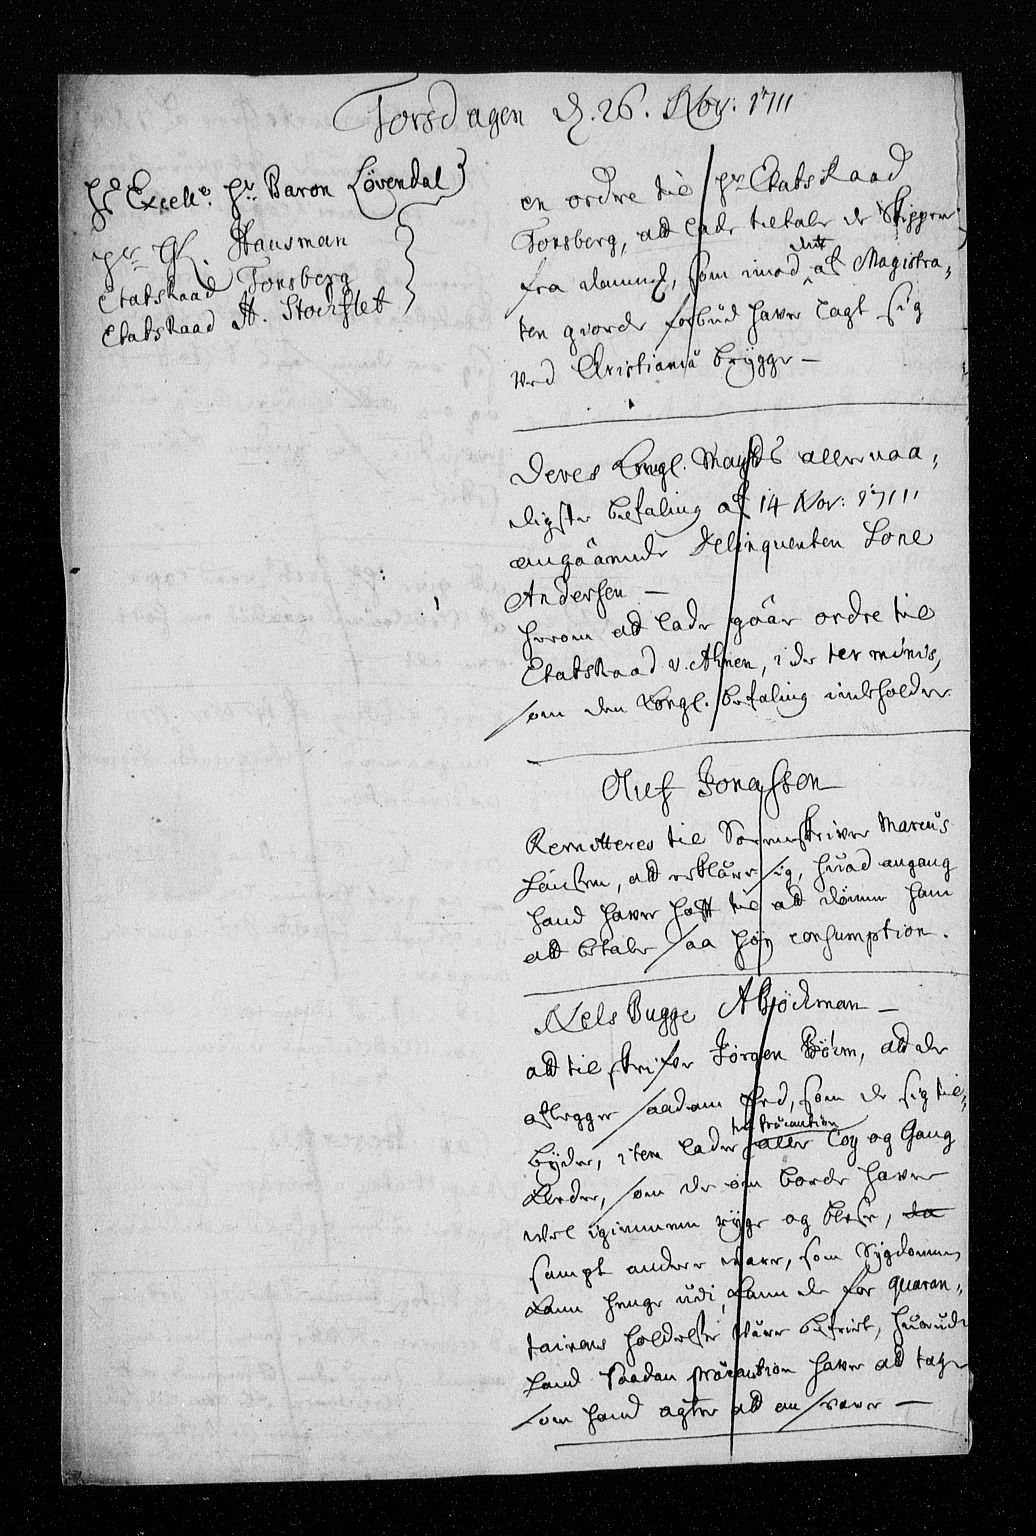 Torsdagen d. 26. Nov: 1711
Hs Excell. Hr Baron Løvendal
Hr Hausman
Etatsraad Tonsberg
Etatsraad H. Stockflet
en ordre til Hr Etatsraad
Tonsberg, att lade tiltale de Skipper
fra som imod dette af Magistra-
ten giorde forbud haver lagt sig
ved Christiania brygge —
Deres Kongl. Mayts allernaa-
digste befaling af 14 Nov: 1711
angaaende Delinquenten Lone
Andersen —
herom att lade gaar ordre til
Etatsraad v. Ahnen, i de terminis,
som den Kongl. befaling indeholder
Oluf Jonassen
Remitteres til Sorenskriver Marcus
att erklære sig, hvad
hand haver hafft til att dømme ham
att betale saa høy consumption.
Nels Bugge A Biöckman —
att tilskrifve Jörgen att de
aflegger saadan Eed, som de sig til-
byder, item lader aller Toy og Gang
Klæder, som de om borde haver
vel igiennem ryge og da
sampt andere vare, som Sygdommen
kann henge udi, kann de for quaran-
tainens holdelse være befriet, hvorudi
hand saadan præcaution haver att tage
som hand agter att an svare —